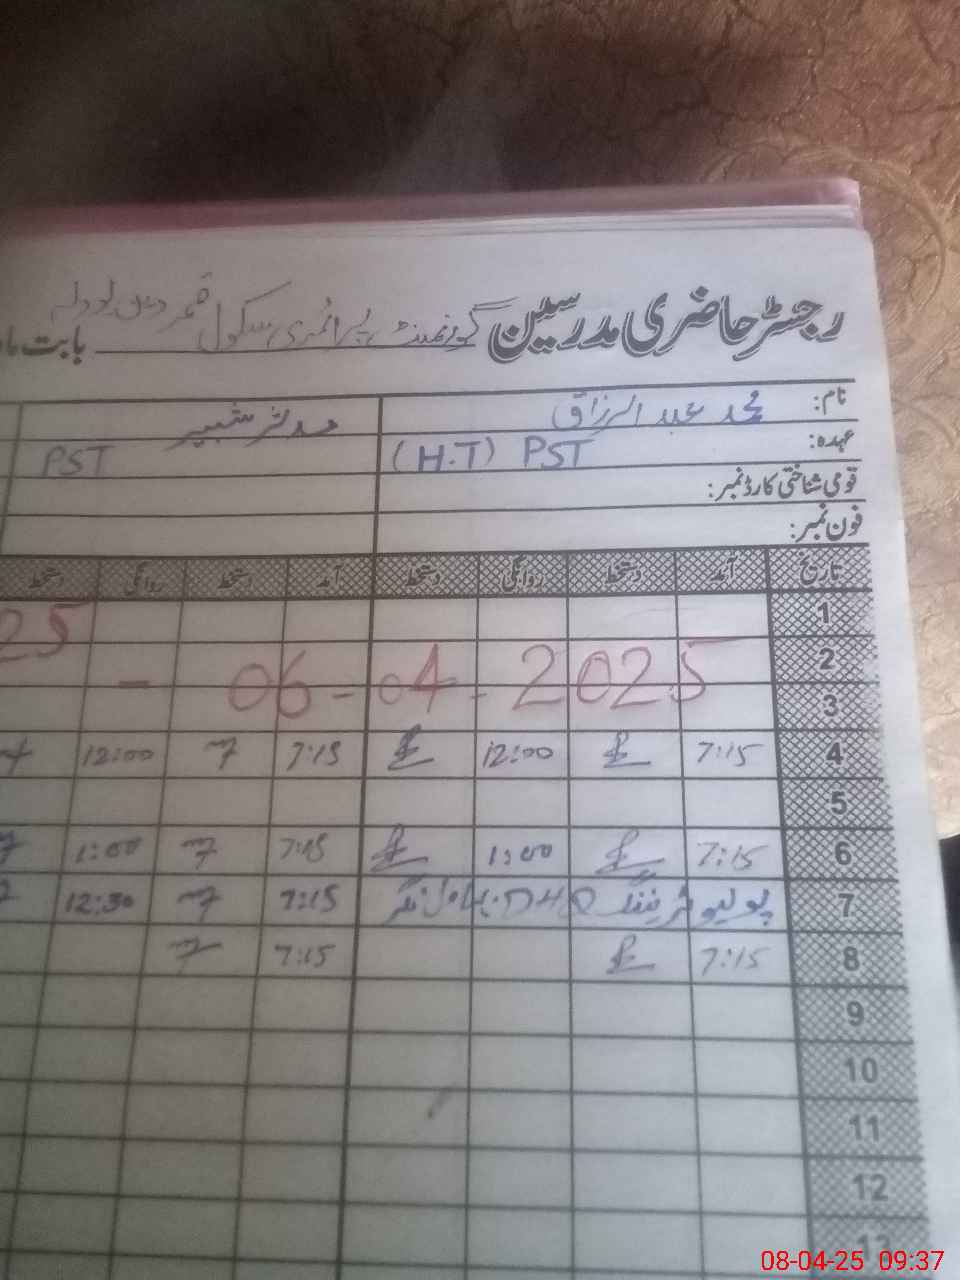 رجسٹر حاضری مدرسین گورنمنٹ پرائمری سکول قمر دین لودلہ بابت ماہ
نام: محمد عبدالرزاق مدثر شبیر
عہدہ: (H.T) PST PST
قومی شناختی کارڈ نمبر:
فون نمبر:
تاریخ آمد دستخط روانگی دستخط آمد دستخط روانگی دستخط
1
2
25 - 06-04-2025
3
4 7:15 12:00 7:15 12:00
5
6 7:15 1:00 7:15 1:00
7 پولیو ٹریننگ 7:15 12:30
8 7:15 7:15
9
10
11
12
13
08-04-25 09:37